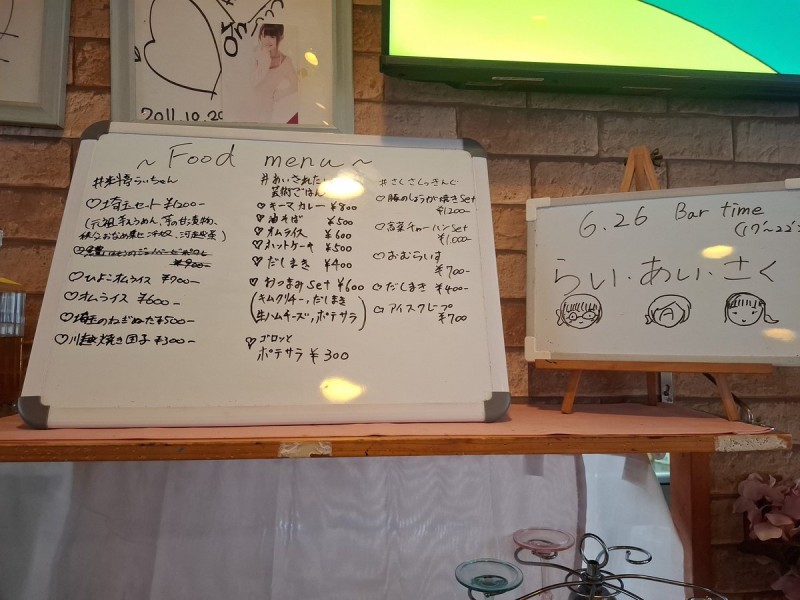 2011.10.20
~ Food menu ~
#料亭らぃちゃん
♡埼玉セット ¥1200-
♡ひよこオムライス ¥700-
♡オムライス ¥600-
♡埼玉のねぎぬた ¥500-
♡川越焼き団子 ¥300-
#あいされたい
芸術ごはん
♥キーマカレー ¥800
♥油そば ¥500
♥オムライス ¥600
♥ホットケーキ ¥500
♥だしまき ¥400
♥おつまみ set ¥600
(キムクリチー、だしまき
生ハムチーズ、ポテサラ)
♥ゴロッと
ポテサラ ¥300
#さくさくっきんぐ
♡豚のしょうが焼き set
¥1200-
♡高菜チャーハン set
¥1,000-
♡おむらいす
¥700-
♡だしまき ¥400-
♡アイスクレープ
¥700
6.26 Bar time
(17~22)
らい・あい・さく